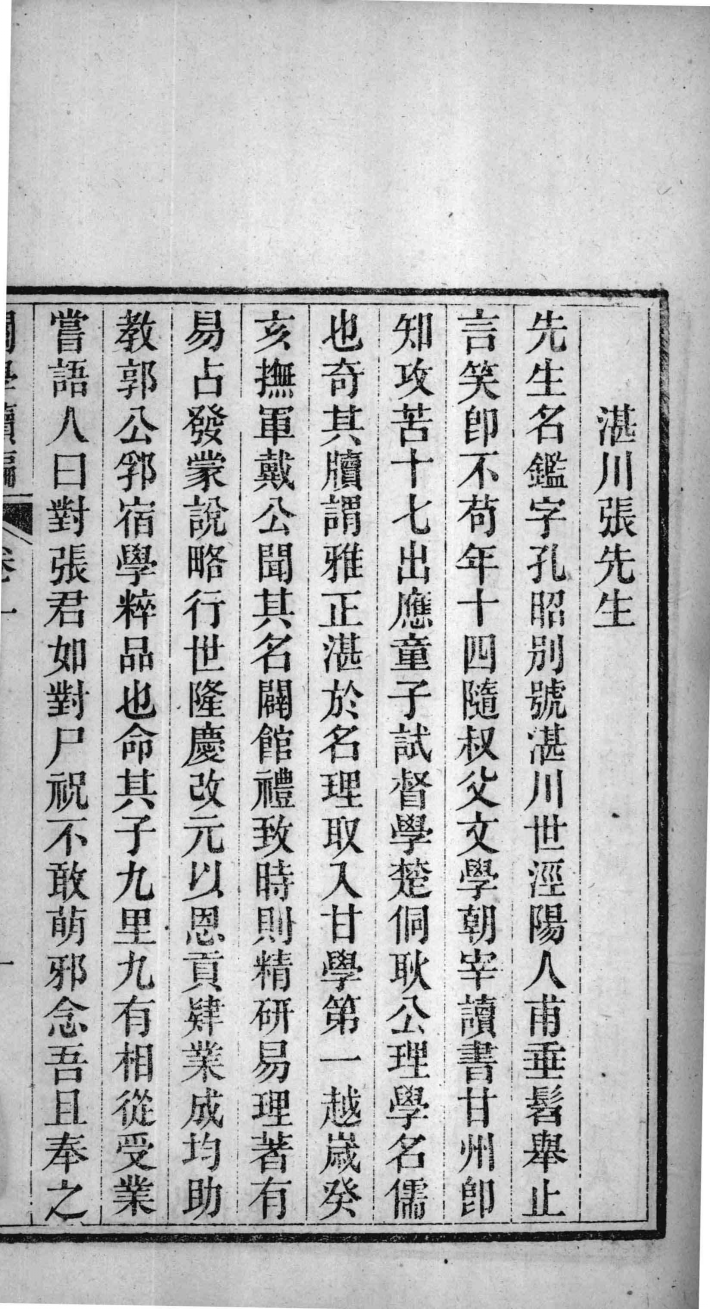 湛川張先生
先生名鑑字孔昭別號湛川世涇陽人甫垂髫舉止
言笑卽不苟年十四隨叔父文學朝宰讀書甘州卽
知攻苦十七出應童子試督學楚侗耿公理學名儒
也奇其牘謂雅正湛於名理取入甘學第一越嵗癸
亥撫軍戴公聞其名闢館禮致時則精研易理著有
易占發蒙說略行世隆慶改元以恩貢肄業成均助
教郭公郛宿學粹品也命其子九里九有相從受業
嘗語人曰對張君如對尸祝不敢萌邪念吾且奉之
關學續編 卷一 一